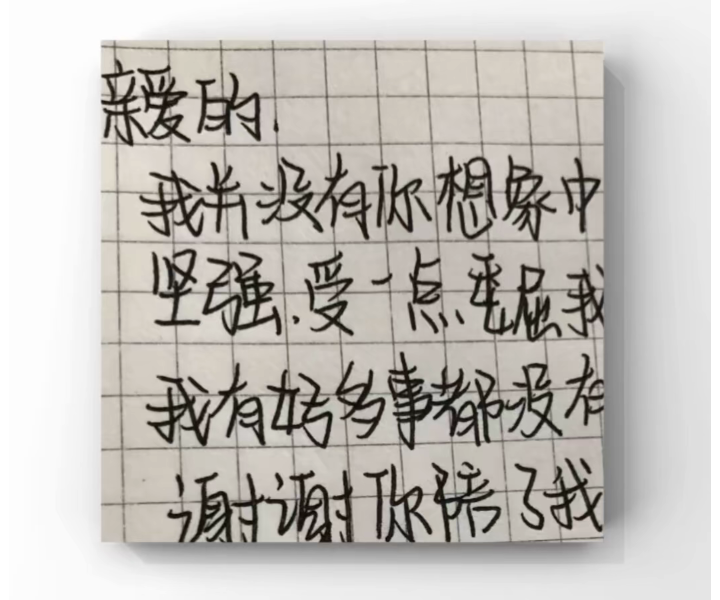 亲爱的.
我并没有你想象中
坚强.受一点委屈我
我有好多事都没有
谢谢你陪了我